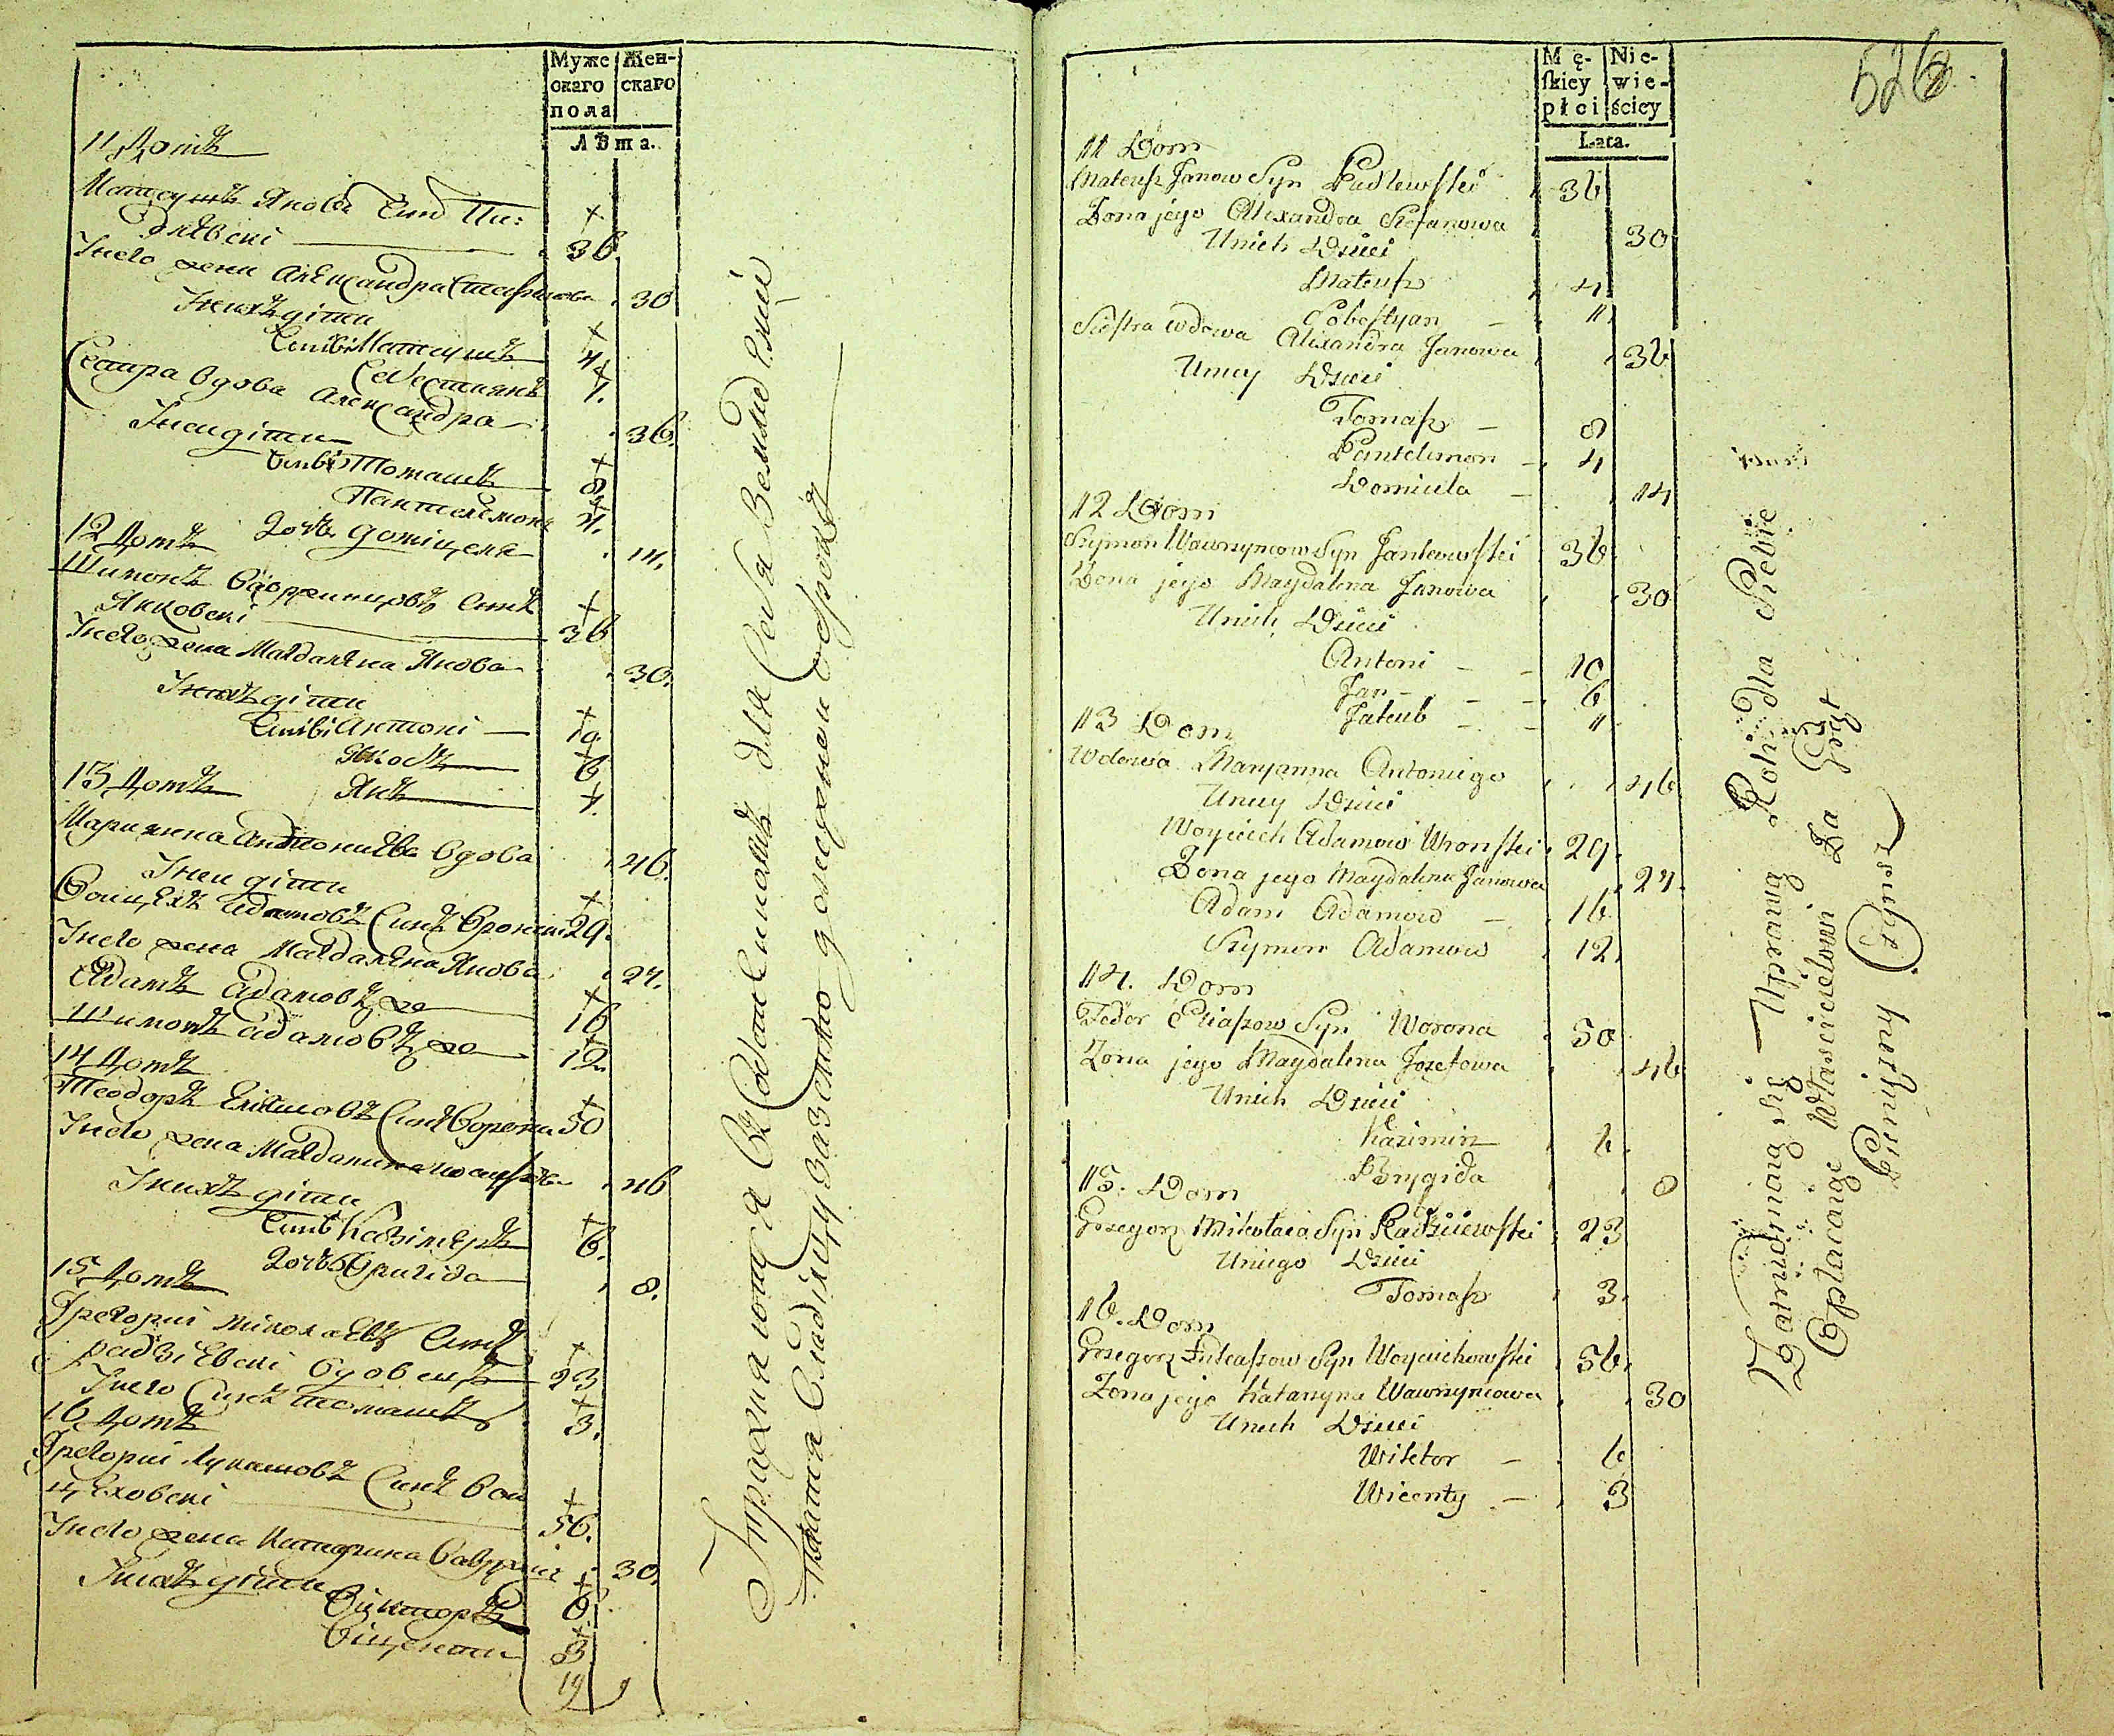 Муже
скаго
пола
Жен-
скаго
Лѣта.
11 Домъ
Матеушъ Янова Синъ Пу:
длѣвскі 36.
Унего жена Александра Стефанова 30
Унихъ діти
Сини Матеушъ 4
Себестиянъ 1.
Сестра вдова Александра 36.
Унеи діти
Сини Томашъ 8
Пантелемонъ 4.
12 Домъ Дочь Доміцеля 14.
Шимонъ Вавржинцовъ Синъ
Янковскі 36
Унего жена Магдалѣна Янова 30.
Унихъ діти
Сини Антоні 10.
Якобъ 6
13 Домъ Янъ 1.
Марианна Антониева вдова 46.
Унеи діти
Воицехъ Адамовъ Синъ Вронски 29.
Унего жена Магдалѣна Янова 24.
Адамъ Адамовъ же 16
Шимонъ Адамовъ же 12.
14 Домъ
Теодоръ Еліяшовъ Синъ Ворона 50
Унего жена Магдалина Иозефова 46
Унихъ діти
Синъ Казимеръ 6.
15 Домъ Дочь Бригида 8.
Грегории Миколаевъ Синъ
Радзіевскі вдовецъ 23
Унего Синъ Томашъ 3.
16 Домъ
Грегории Лукашовъ Синъ Вои
цеховскі 56.
Унего жена Катарина Вавржин 30.
Унихъ діти
Викторъ 6.
Віценти 3
19 9
Mę-
skiey
płci
Nie-
wie-
ściey
Lata.
526
11 Dom
Mateusz Janow Syn Pudlewski 36
Zona jego Alexandra Stefanowa 30
Unich Dzieci
Mateusz 4
Sobestyan — 1
Siostra wdowa Alexandra Janowa 36
Uniey Dzieci
Tomasz — 8
Pantelimon — 4
Domicela — 14
12 Dom
Szymon Wawrzyncow Syn Jankowski 36
Zona jego Magdalena Janowa 30
Unich Dzieci
Antoni — — 10
Jan — — 6
13 Dom Jakub — — 1
Wdowa Maryanna Antoniego 46
Uniey Dzieci
Woyciech Adamow Wronski 29.
Zona jego Magdalena Janowa 24.
Adam Adamow — 16
Szymon Adamow 12.
14. Dom
Fedor Eliaszow Syn Worona 50
Zona jego Magdalena Jozefowa 46
Unich Dzieci
Kazimirz 6.
15. Dom Brygida 8
Grzegorz Mikołaia Syn Radziiewski 23
Uniego Dzieci
Tomasz 3.
16. Dom
Grzegorz Łukaszow Syn Woyciechowski 56.
Zona jego Katarzyna Wawrzyncowa 30
Unich Dzieci
Wiktor — 6
Wicenty — 3
Zatrudniaią się Uprawą Roli dla Siebie
Opłacaiąc Właścicielowi Za Grunt
Umiejszony Czynsz